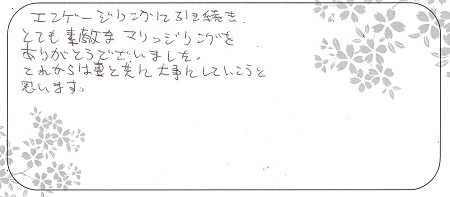 エンゲージリングに引き続き、
とても素敵なマリッジリングを
ありがとうございました。
これからは妻と共に大事にしていこうと
思います。